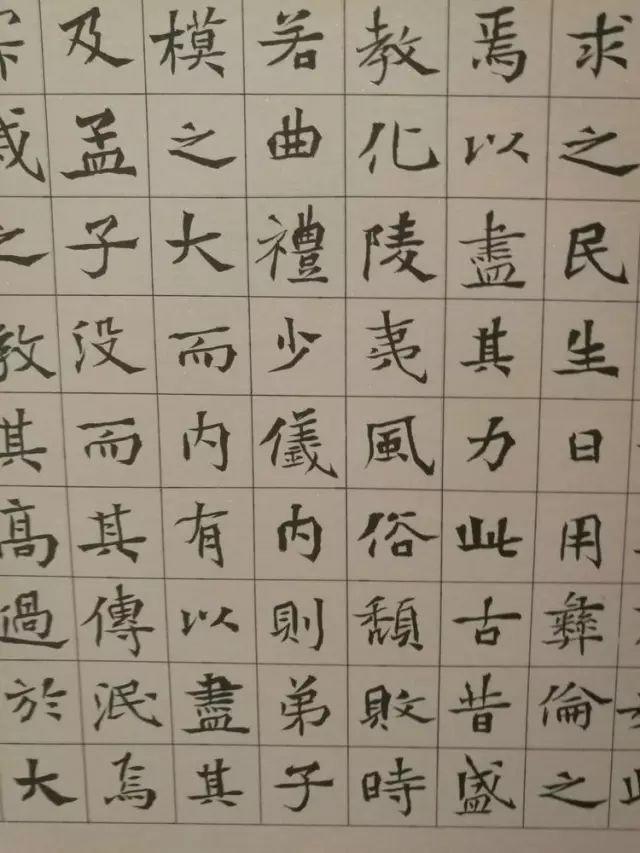 求之民生日用彝倫之
焉以盡其力此古昔盛
教化陵夷風俗頽敗時
若曲禮少儀内則弟子
模之大而内有以盡其
及孟子没而其傳泯焉
之教其高過於大